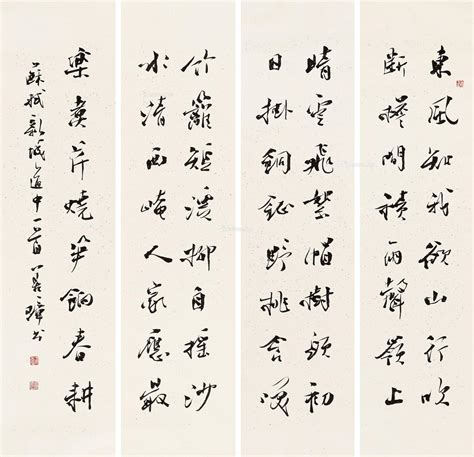 東風知我欲山行吹
斷檐間積雨聲嶺上
晴雲飛絮帽樹頭初
日掛銅鉦野桃含咲
竹籬短溪柳自搖沙
水清西崦人家應最
樂煮芹燒笋餉春耕
蘇軾新城道中一首 書